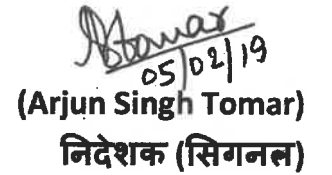 AStomar
05/02/19
(Arjun Singh Tomar)
निदेशक (सिगनल)